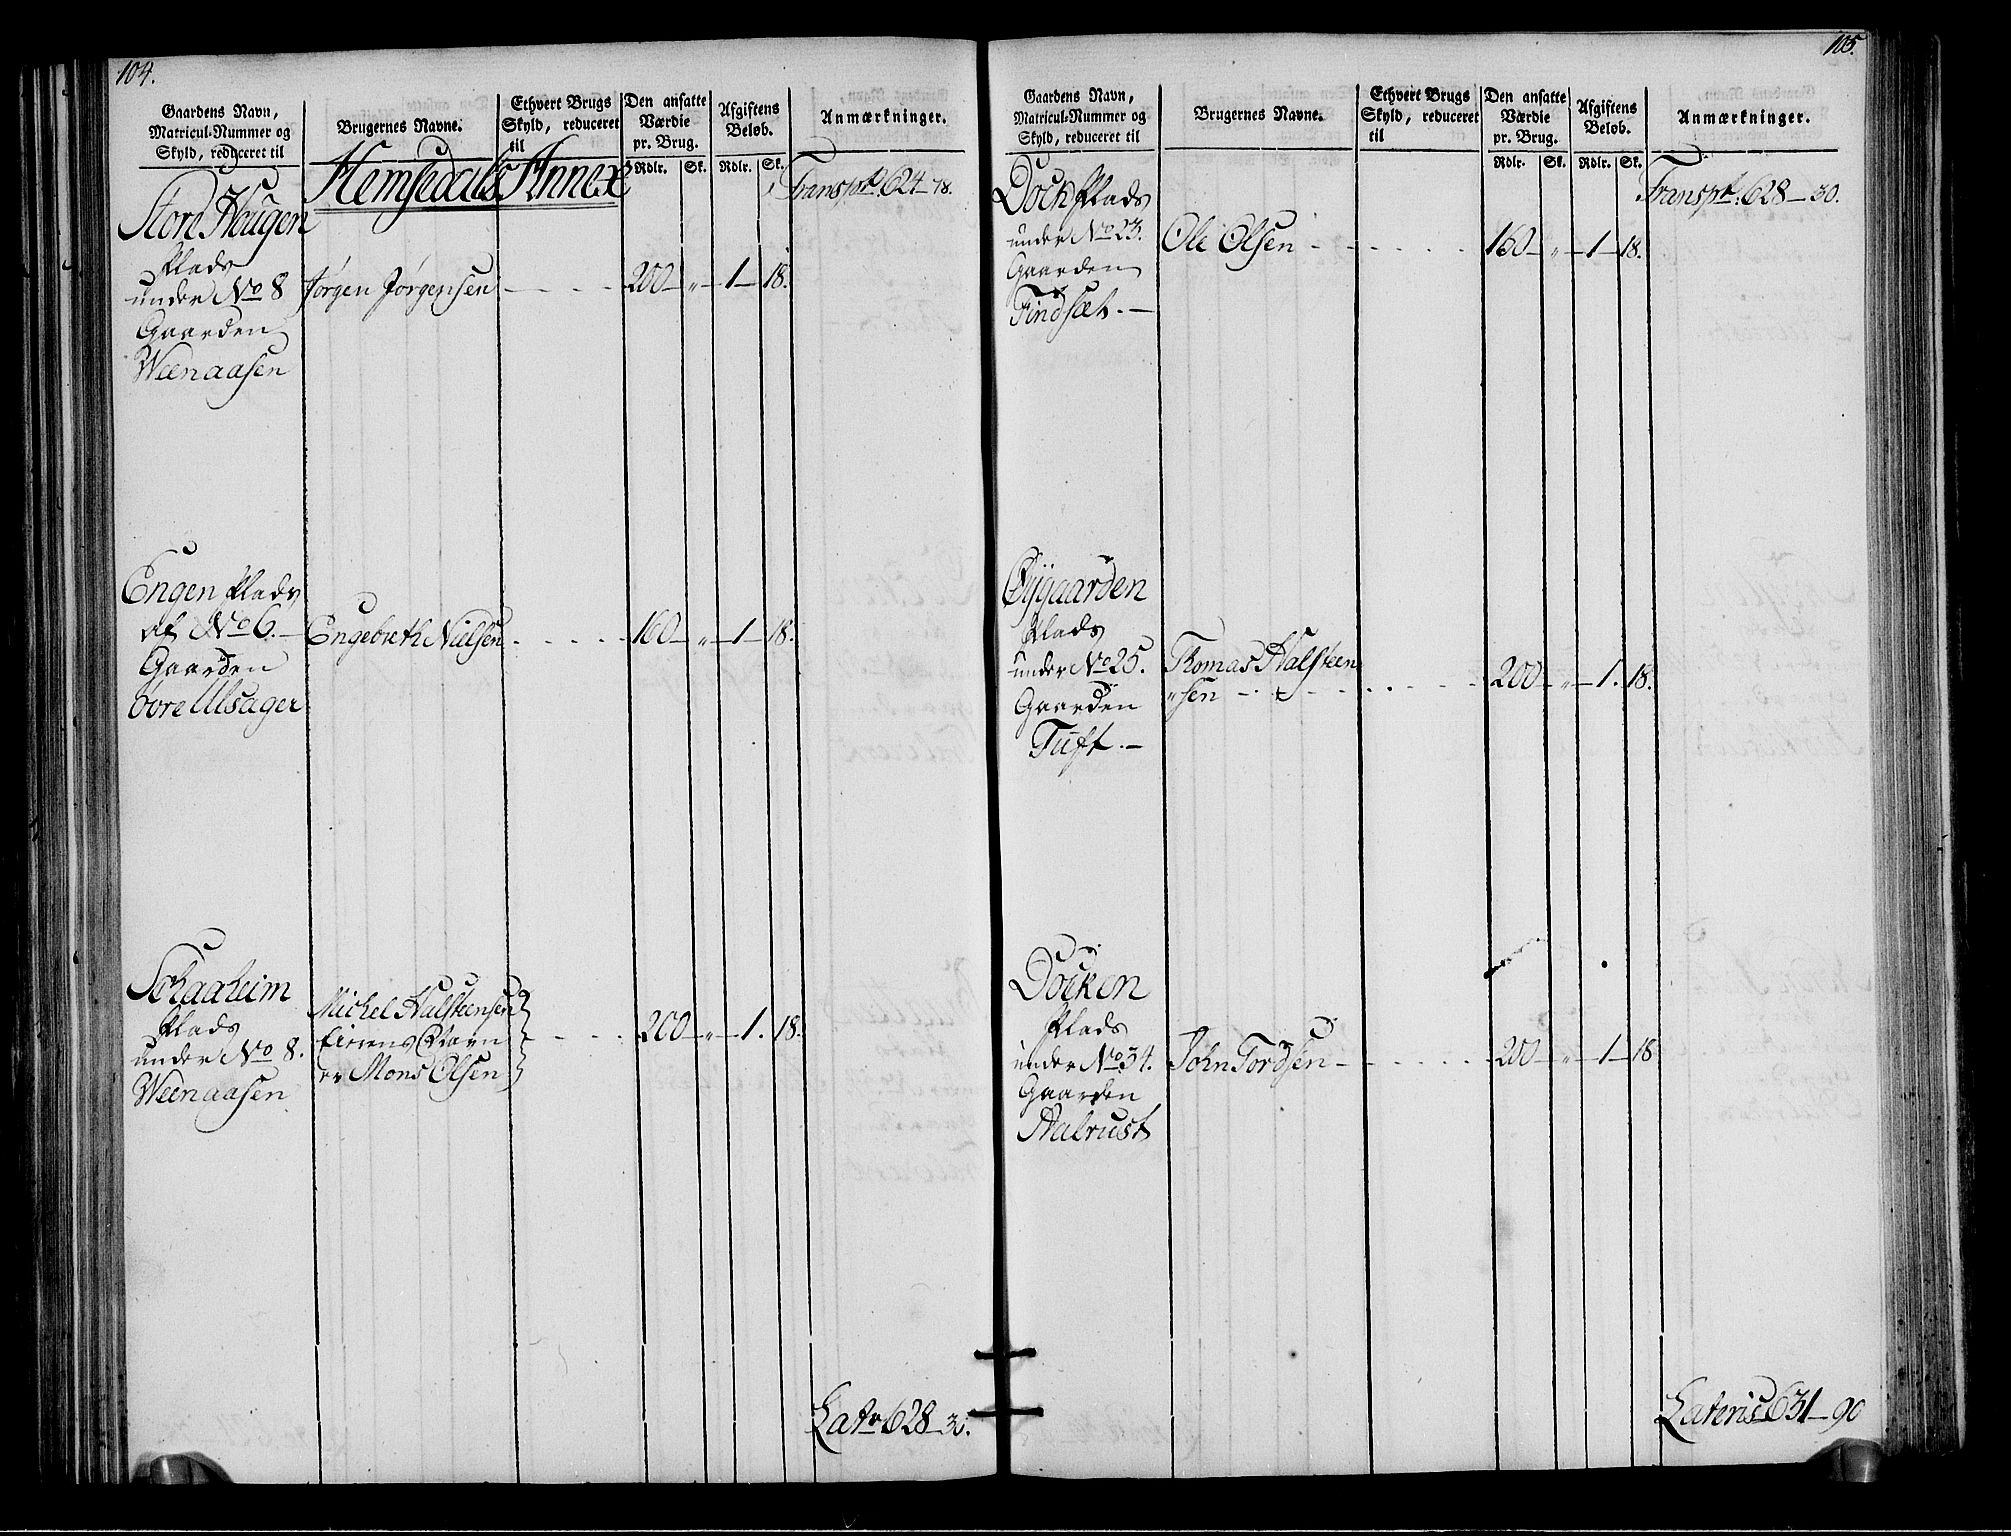 104.
Gaardens Navn,
Matricul-Nummer og
Skyld, reduceret til
Brugernes Navne.
Ethvert Brugs
Skyld, reduceret
til
Den ansatte
Værdie
pr. Brug.
Rdlr. Sk.
Afgiftens
Beløb.
Rdlr. Sk.
Anmærkninger.
Hemsedals Annex
Transpt. 624 - 78.
Store Hougen
Plads
under No 8 Jørgen Jørgensen - - - - 200 - " - 1 - 18.
Gaarden
Weenaasen
Engen Plads
af No 6. - Engebreth Nielsen - - - - 160 - " - 1 - 18.
Gaarden
øvre Ulsager
Schaaheim Michel Halsteensen
Plads Eierens Navn - - - 200 - " - 1. 18.
under No 8. er Mons Olsen
Weenaasen
Latr 628 - 30.
105.
Gaardens Navn,
Matricul-Nummer og
Skyld, reduceret til
Brugernes Navne.
Ethvert Brugs
Skyld, reduceret
til
Den ansatte
Værdie
pr. Brug.
Rdlr. Sk.
Afgiftens
Beløb.
Rdlr. Sk.
Anmærkninger.
Transpt. 628 - 30.
Plads
under No 23. Ole Olsen - - - - 160 - " - 1 - 18.
Gaarden
Findsæt. -
Øygaarden
Plads
under No 25. Thomas Halsteen
Gaarden "sen - - - - 200 - " - 1. 18.
Tuft. -
Docken
Plads
under No 34. John Tordsen - - - - 200 - " - 1 - 18
Gaarden
Aalrust
Lateris 631 - 90